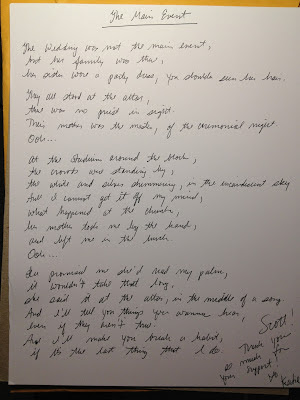 The Main Event
The Wedding was not the main event,
but her family was there,
her sister wore a party dress, you should seen her hair.
They all stood at the altar,
there was no priest in sight.
Their mother was the master, of the ceremonial night.
Ooh...
At the Stadium around the block,
the crowds were standing by,
the white and silver shimmering, in the incandescent sky.
And I cannot get it off my mind,
what happened at the church,
her mother took me by the hand,
and left me in the lurch.
Ooh...
She promised me she'd read my palm,
it wouldn't take that long,
she said it at the altar, in the middle of a song.
And i'll tell you things you wanna hear,
even if they aren't true.
And i'll make you break a habit,
if it's the last thing that I do.
Scott!
Thank you
so much for
your support!